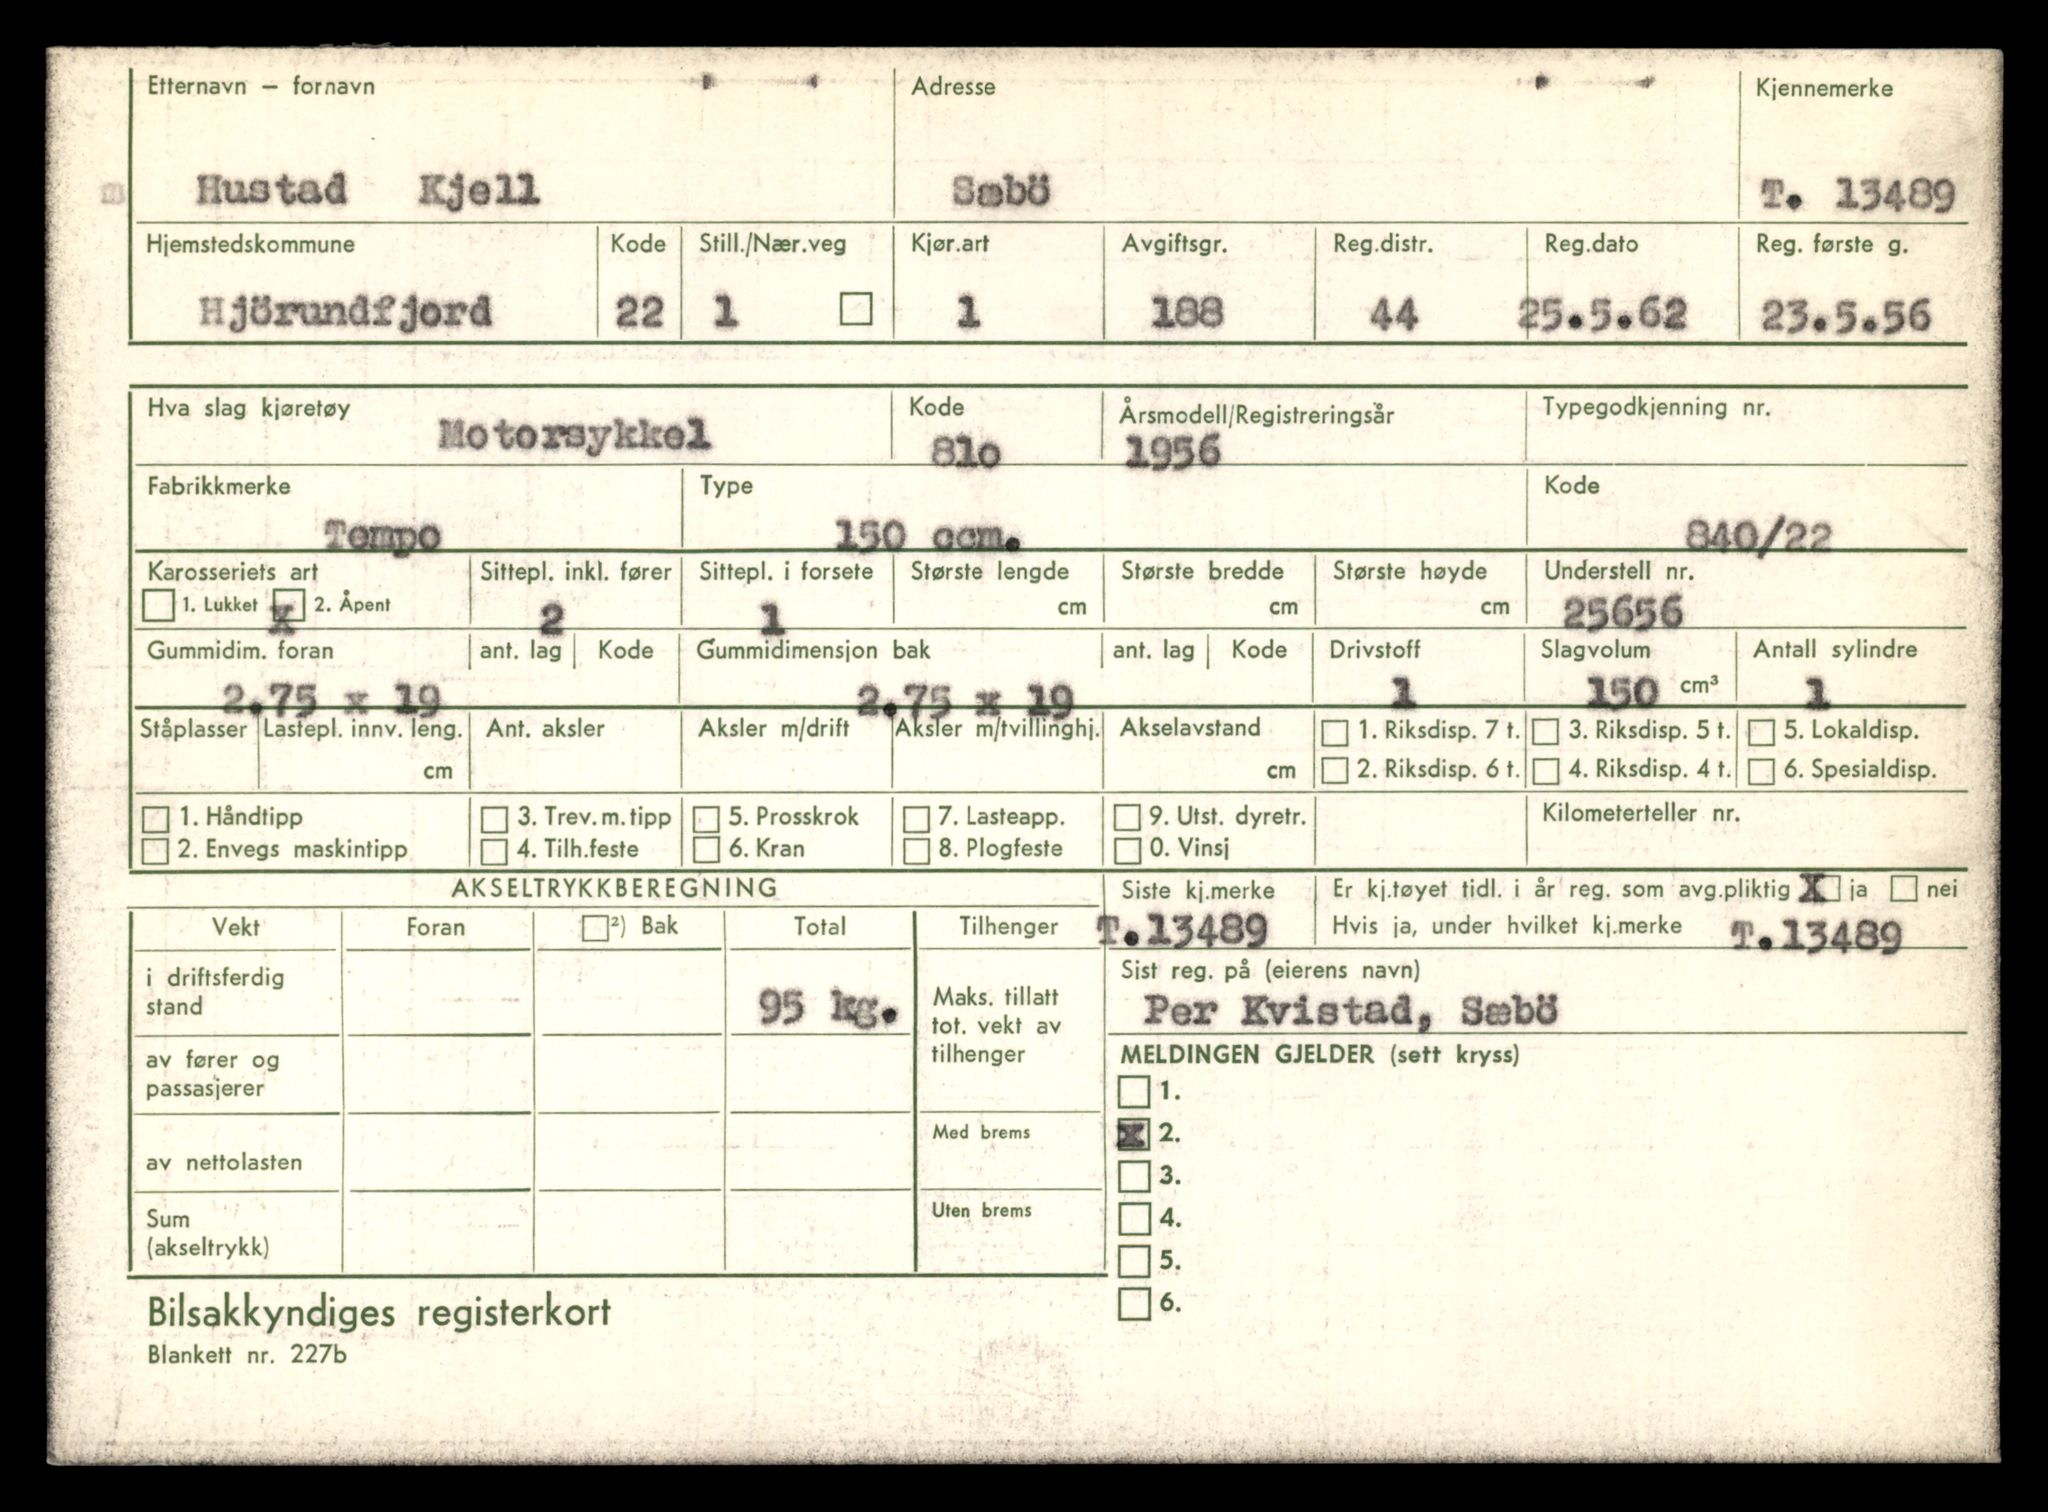 Etternavn — fornavn Adresse Kjennemerke
Hustad Kjell Sæbö T. 13489
Hjemstedskommune Kode Still./Nær.veg Kjør.art Avgiftsgr. Reg.distr. Reg.dato Reg. første g.
Hjörundfjord 22 1 1 188 44 25.5.62 23.5.56
Hva slag kjøretøy Kode Årsmodell/Registreringsår Typegodkjenning nr.
Motorsykkel 81o 1956
Fabrikkmerke Type Kode
Tempo 150 ccm. 840/22
Karosseriets art Sittepl. inkl. fører Sittepl. i forsete Største lengde Største bredde Største høyde Understell nr.
1. Lukket x 2. Åpent 2 1 cm cm cm 25656
Gummidim. foran ant. lag Kode Gummidimensjon bak ant. lag Kode Drivstoff Slagvolum Antall sylindre
2.75 x 19 2.75 x 19 1 150 cm³ 1
Ståplasser Lastepl. innv. leng. Ant. aksler Aksler m/drift Aksler m/tvillinghj. Akselavstand 1. Riksdisp. 7 t. 3. Riksdisp. 5 t. 5. Lokaldisp.
cm cm 2. Riksdisp. 6 t. 4. Riksdisp. 4 t. 6. Spesialdisp.
1. Håndtipp 3. Trev.m.tipp 5. Prosskrok 7. Lasteapp. 9. Utst. dyretr. Kilometerteller nr.
2. Envegs maskintipp 4. Tilh.feste 6. Kran 8. Plogfeste 0. Vinsj
AKSELTRYKKBEREGNING Siste kj.merke Er kj.tøyet tidl. i år reg. som avg.pliktig X ja nei
Vekt Foran ²) Bak Total Tilhenger T.13489 Hvis ja, under hvilket kj.merke T.13489
i driftsferdig
stand 95 kg.
Maks. tillatt
tot. vekt av
tilhenger
Sist reg. på (eierens navn)
Per Kvistad, Sæbö
av fører og
passasjerer
MELDINGEN GJELDER (sett kryss)
1.
Med brems x 2.
av nettolasten 3.
Sum
(akseltrykk)
Uten brems 4.
5.
6.
Bilsakkyndiges registerkort
Blankett nr. 227b